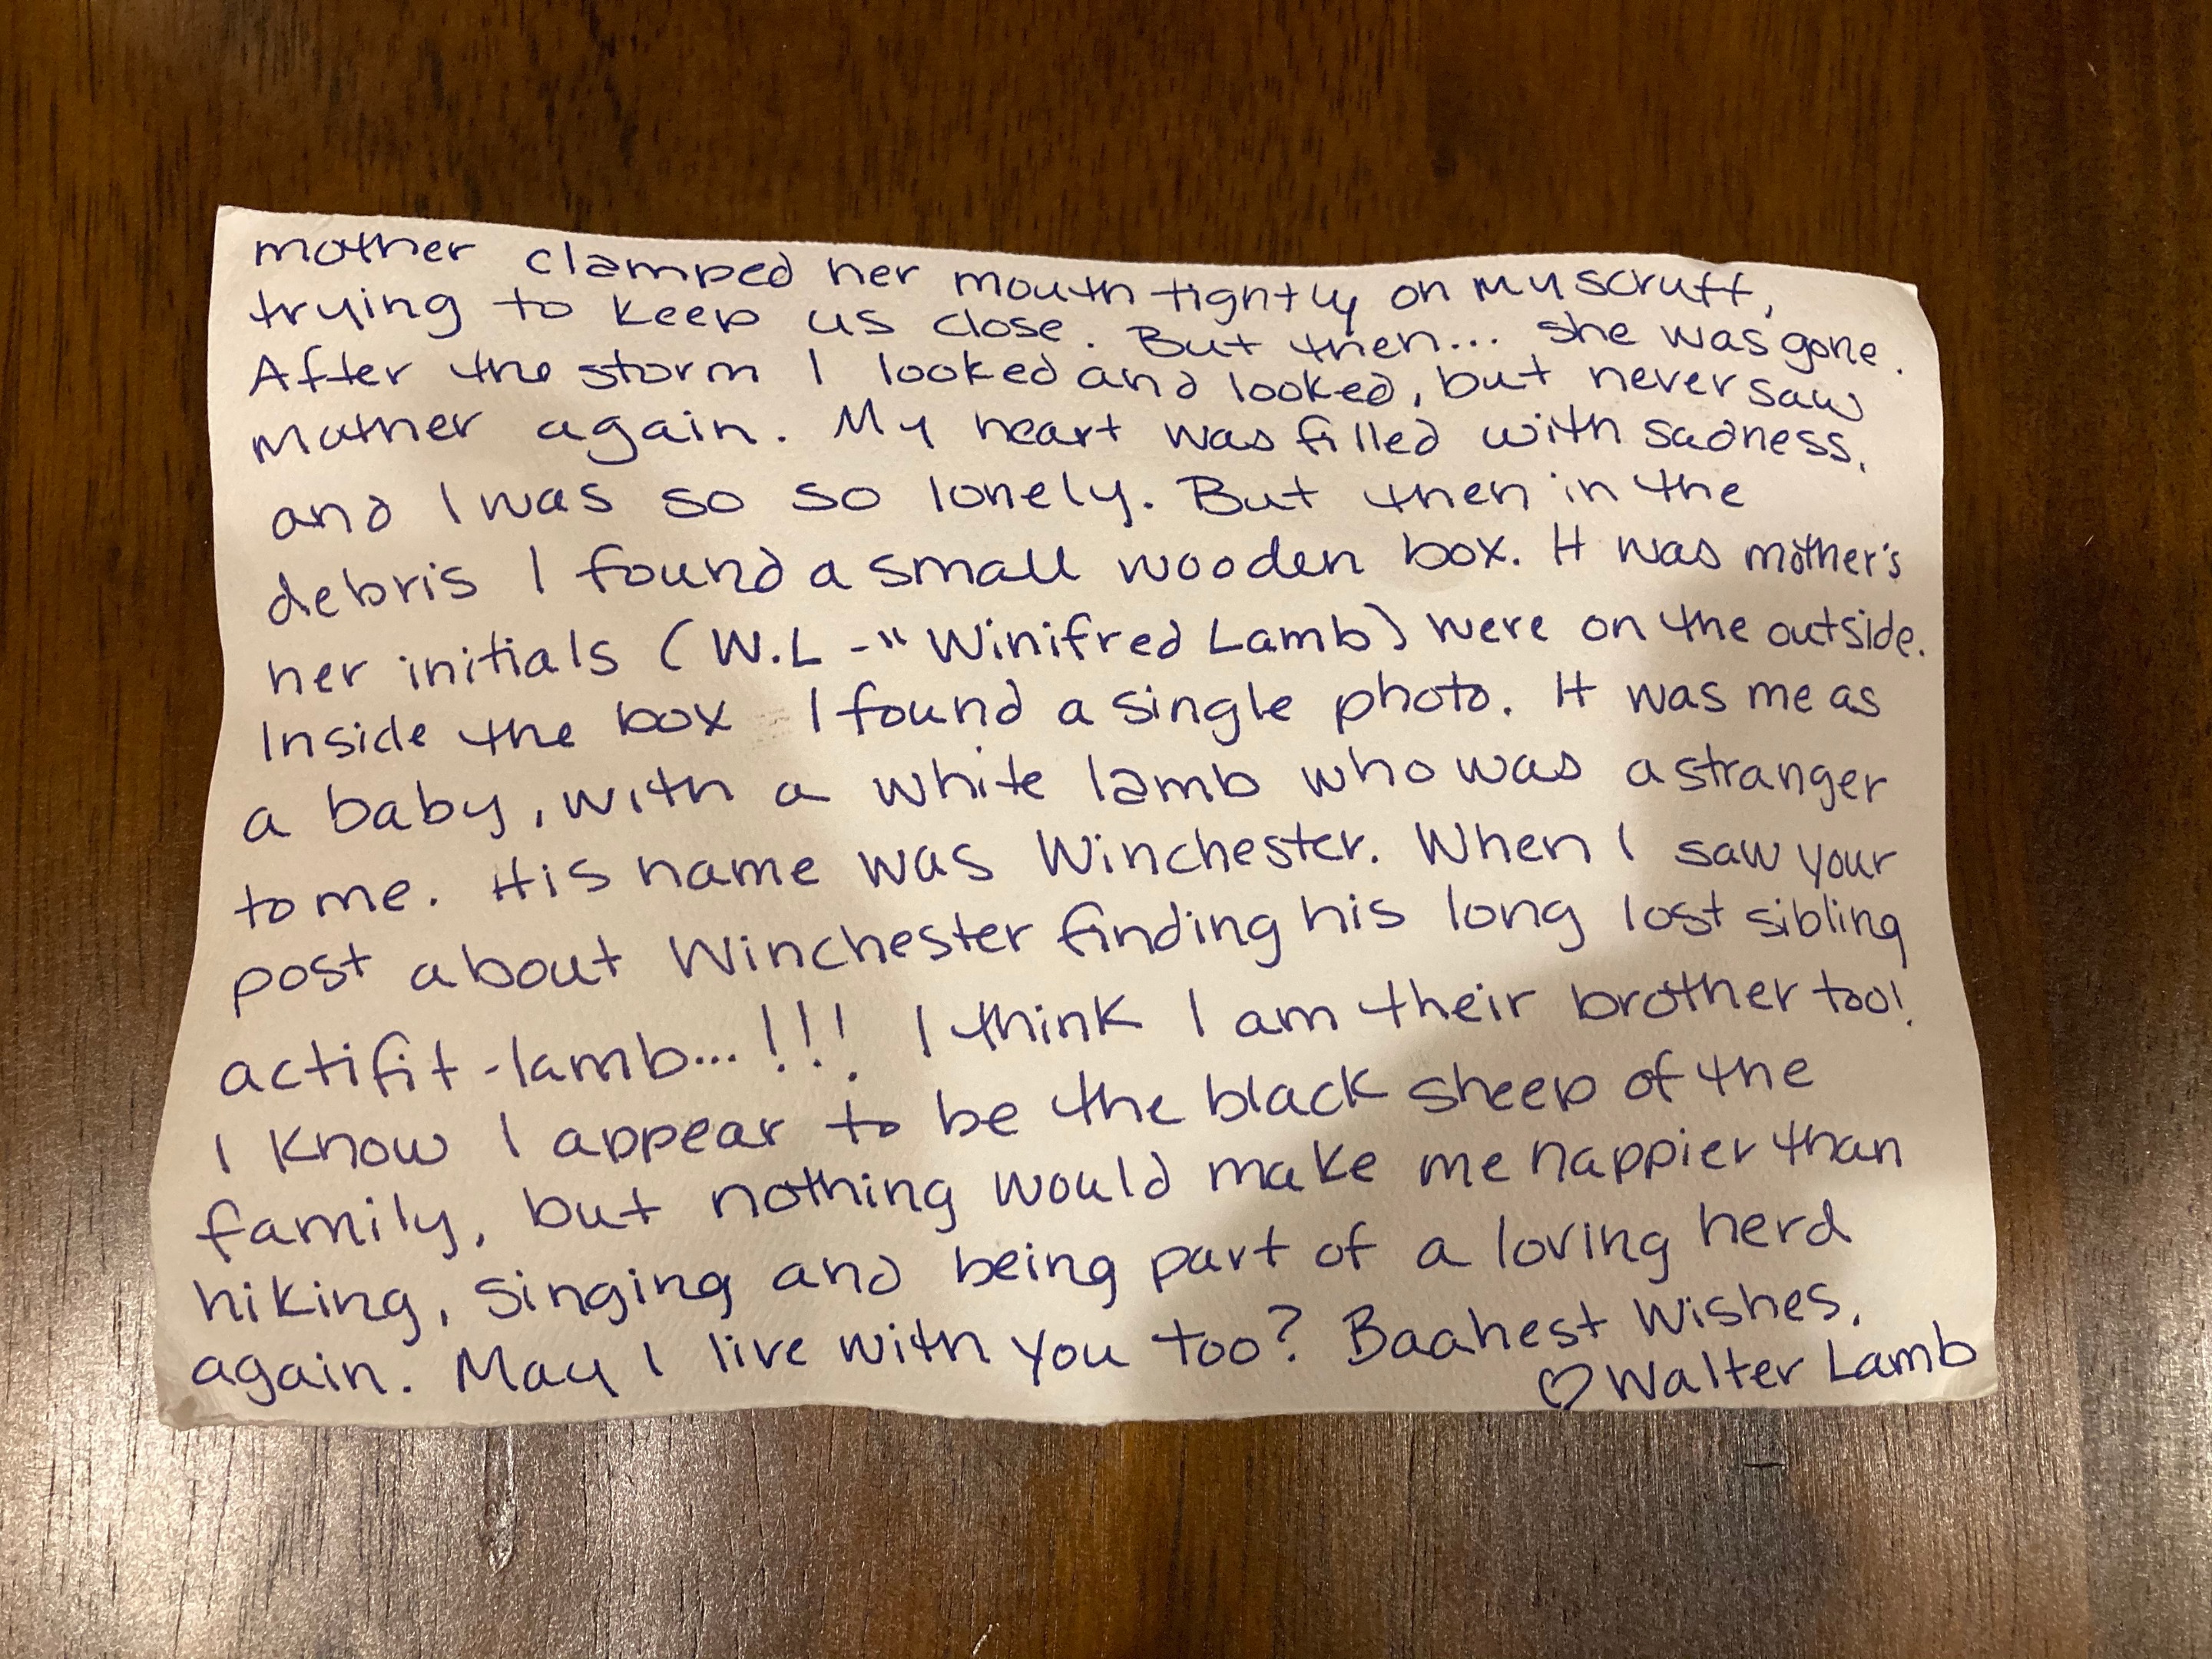 mother clamped her mouth tightly on my scruff,
trying to keep us close. But then... she was gone.
After the storm I looked and looked, but never saw
mother again. My heart was filled with sadness,
and I was so so lonely. But then in the
debris I found a small wooden box. It was mother's
her initials (W.L -" Winifred Lamb) were on the outside.
Inside the box I found a single photo. It was me as
a baby, with a white lamb who was a stranger
to me. His name was Winchester. When I saw your
post about Winchester finding his long lost sibling
actifit-lamb...!!! I think I am their brother too!
I know I appear to be the black sheep of the
family, but nothing would make me happier than
hiking, singing and being part of a loving herd
again. May I live with you too? Baahest Wishes,
♡ Walter Lamb